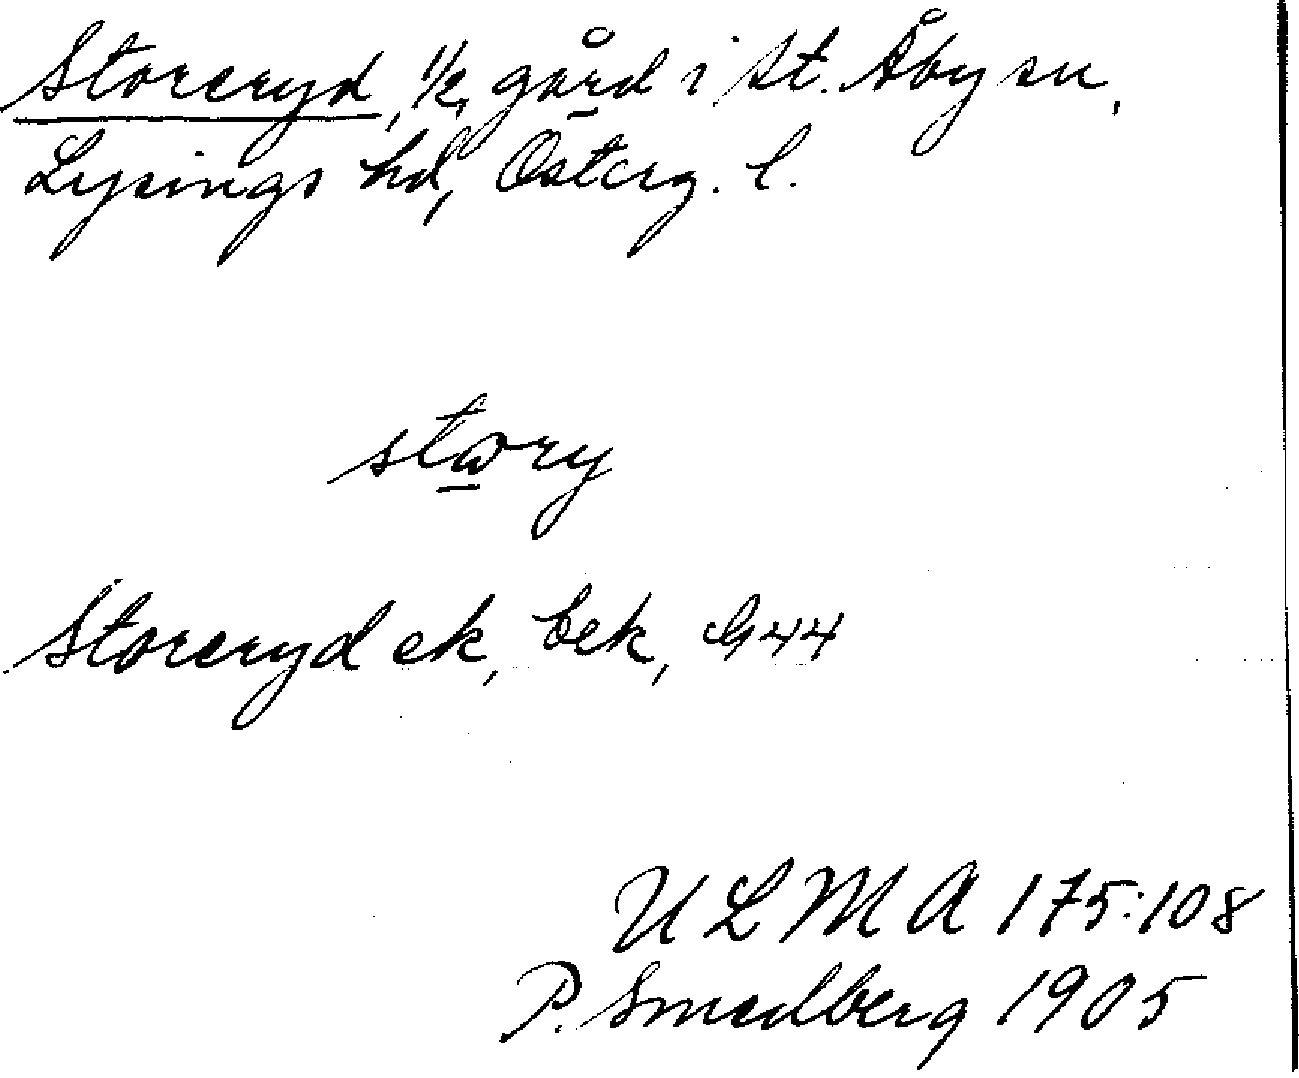 Storeryd, 1/2, gård i St. Åby sn,
Lysings hd, Österg. l.
story
Storeryd ek, bek, G44
ULMA 175:108
P. Smedberg 1905